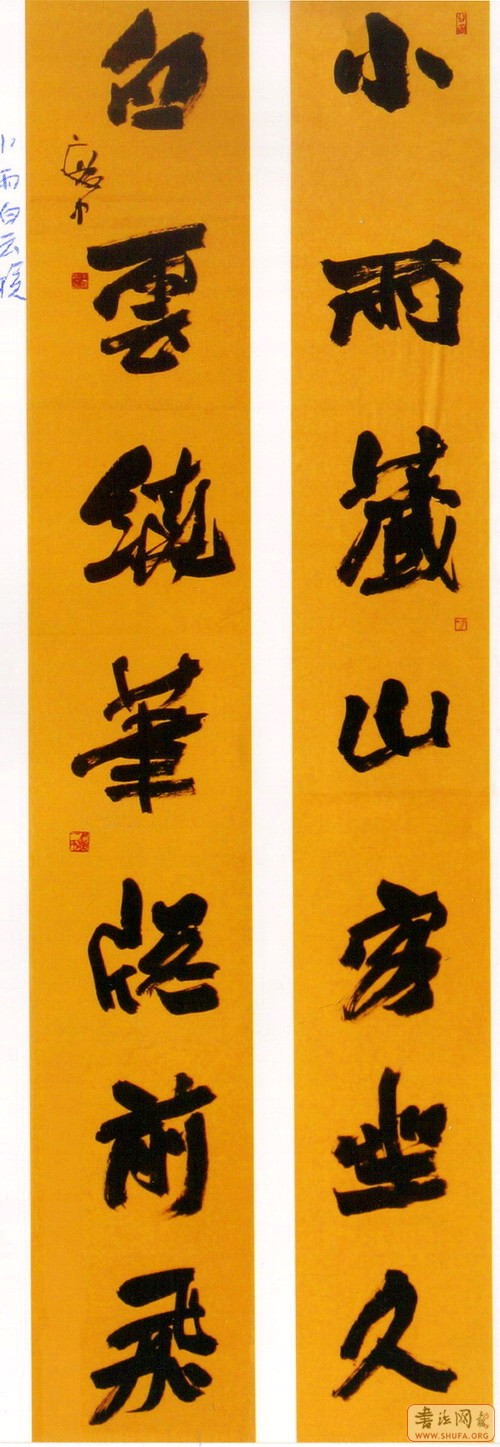 小雨藏山客坐久
白雲繞筆牕前飛
小雨白云
書法网
WWW.SHUFA.ORG